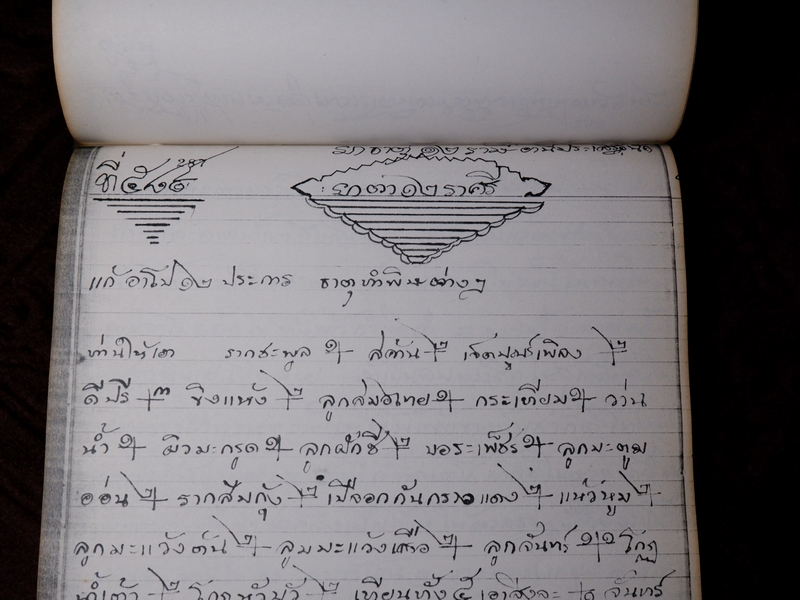 ที่
287
ยา ๑๒ ราศี
แก้ ๑๒ ประการ ธาตุทำพิษต่างๆ
ท่านให้เอา รากชะพูล ๑ สค้าน ๒ เจตมูลเพลิง ๒
ดีปรี ๓ ขิงแห้ง ๒ ลูกสมอไทย ๑ กระเทียม ๑ ว่าน
น้ำ ๑ ผิวมะกรูด ๑ ลูกผักชี ๒ บอระเพ็ชร์ ๑ ลูกมะตูม
อ่อน ๒ รากส้มกุ้ง ๒ เปลือกกันกราวแดง ๒ แห้วหมู ๒
ลูกมะแว้งต้น ๒ ลูมมะแว้งเครือ ๒ ลูกจันทร์ ๑ โกฏ
น้ำเต้า ๒ โกฏหัวบัว ๒ เทียนทั้ง ๕ เอาสิ่งละ ๑ จันทร์